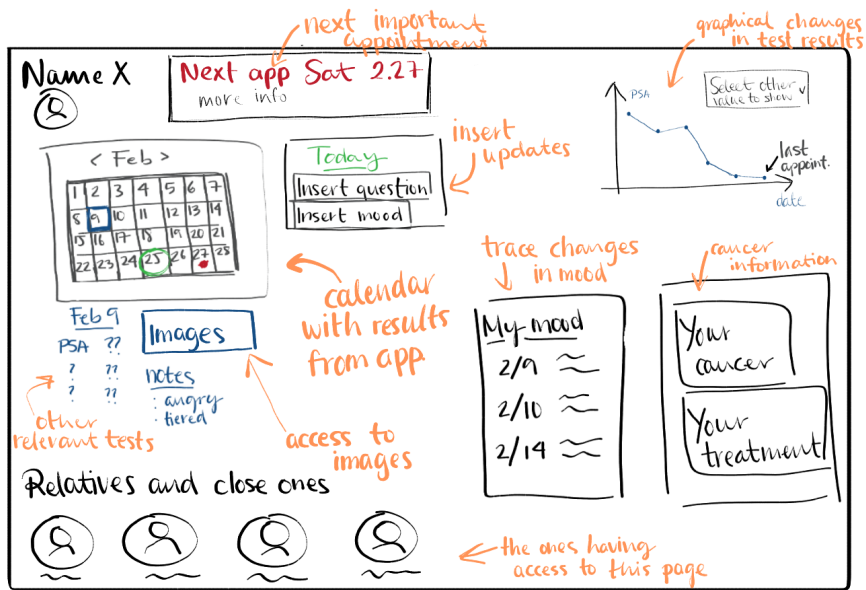 next important
appointment
graphical changes
in test results
Name X
Next app Sat 2.27
more info
PSA
Select other
value to show
last
appoint.
date
< Feb >
1 2 3 4 5 6 7
8 9 10 11 12 13 14
15 16 17 18 19 20 21
22 23 24 25 26 27 28
Today
Insert question
Insert mood
insert
updates
calendar
with results
from app.
trace changes
in mood
cancer
information
Feb 9
PSA ??
? ??
? ??
Images
notes
: angry
: tiered
other
relevant tests
access to
images
My mood
2/9
2/10
2/14
Your
cancer
Your
treatment
Relatives and close ones
the ones having
access to this page